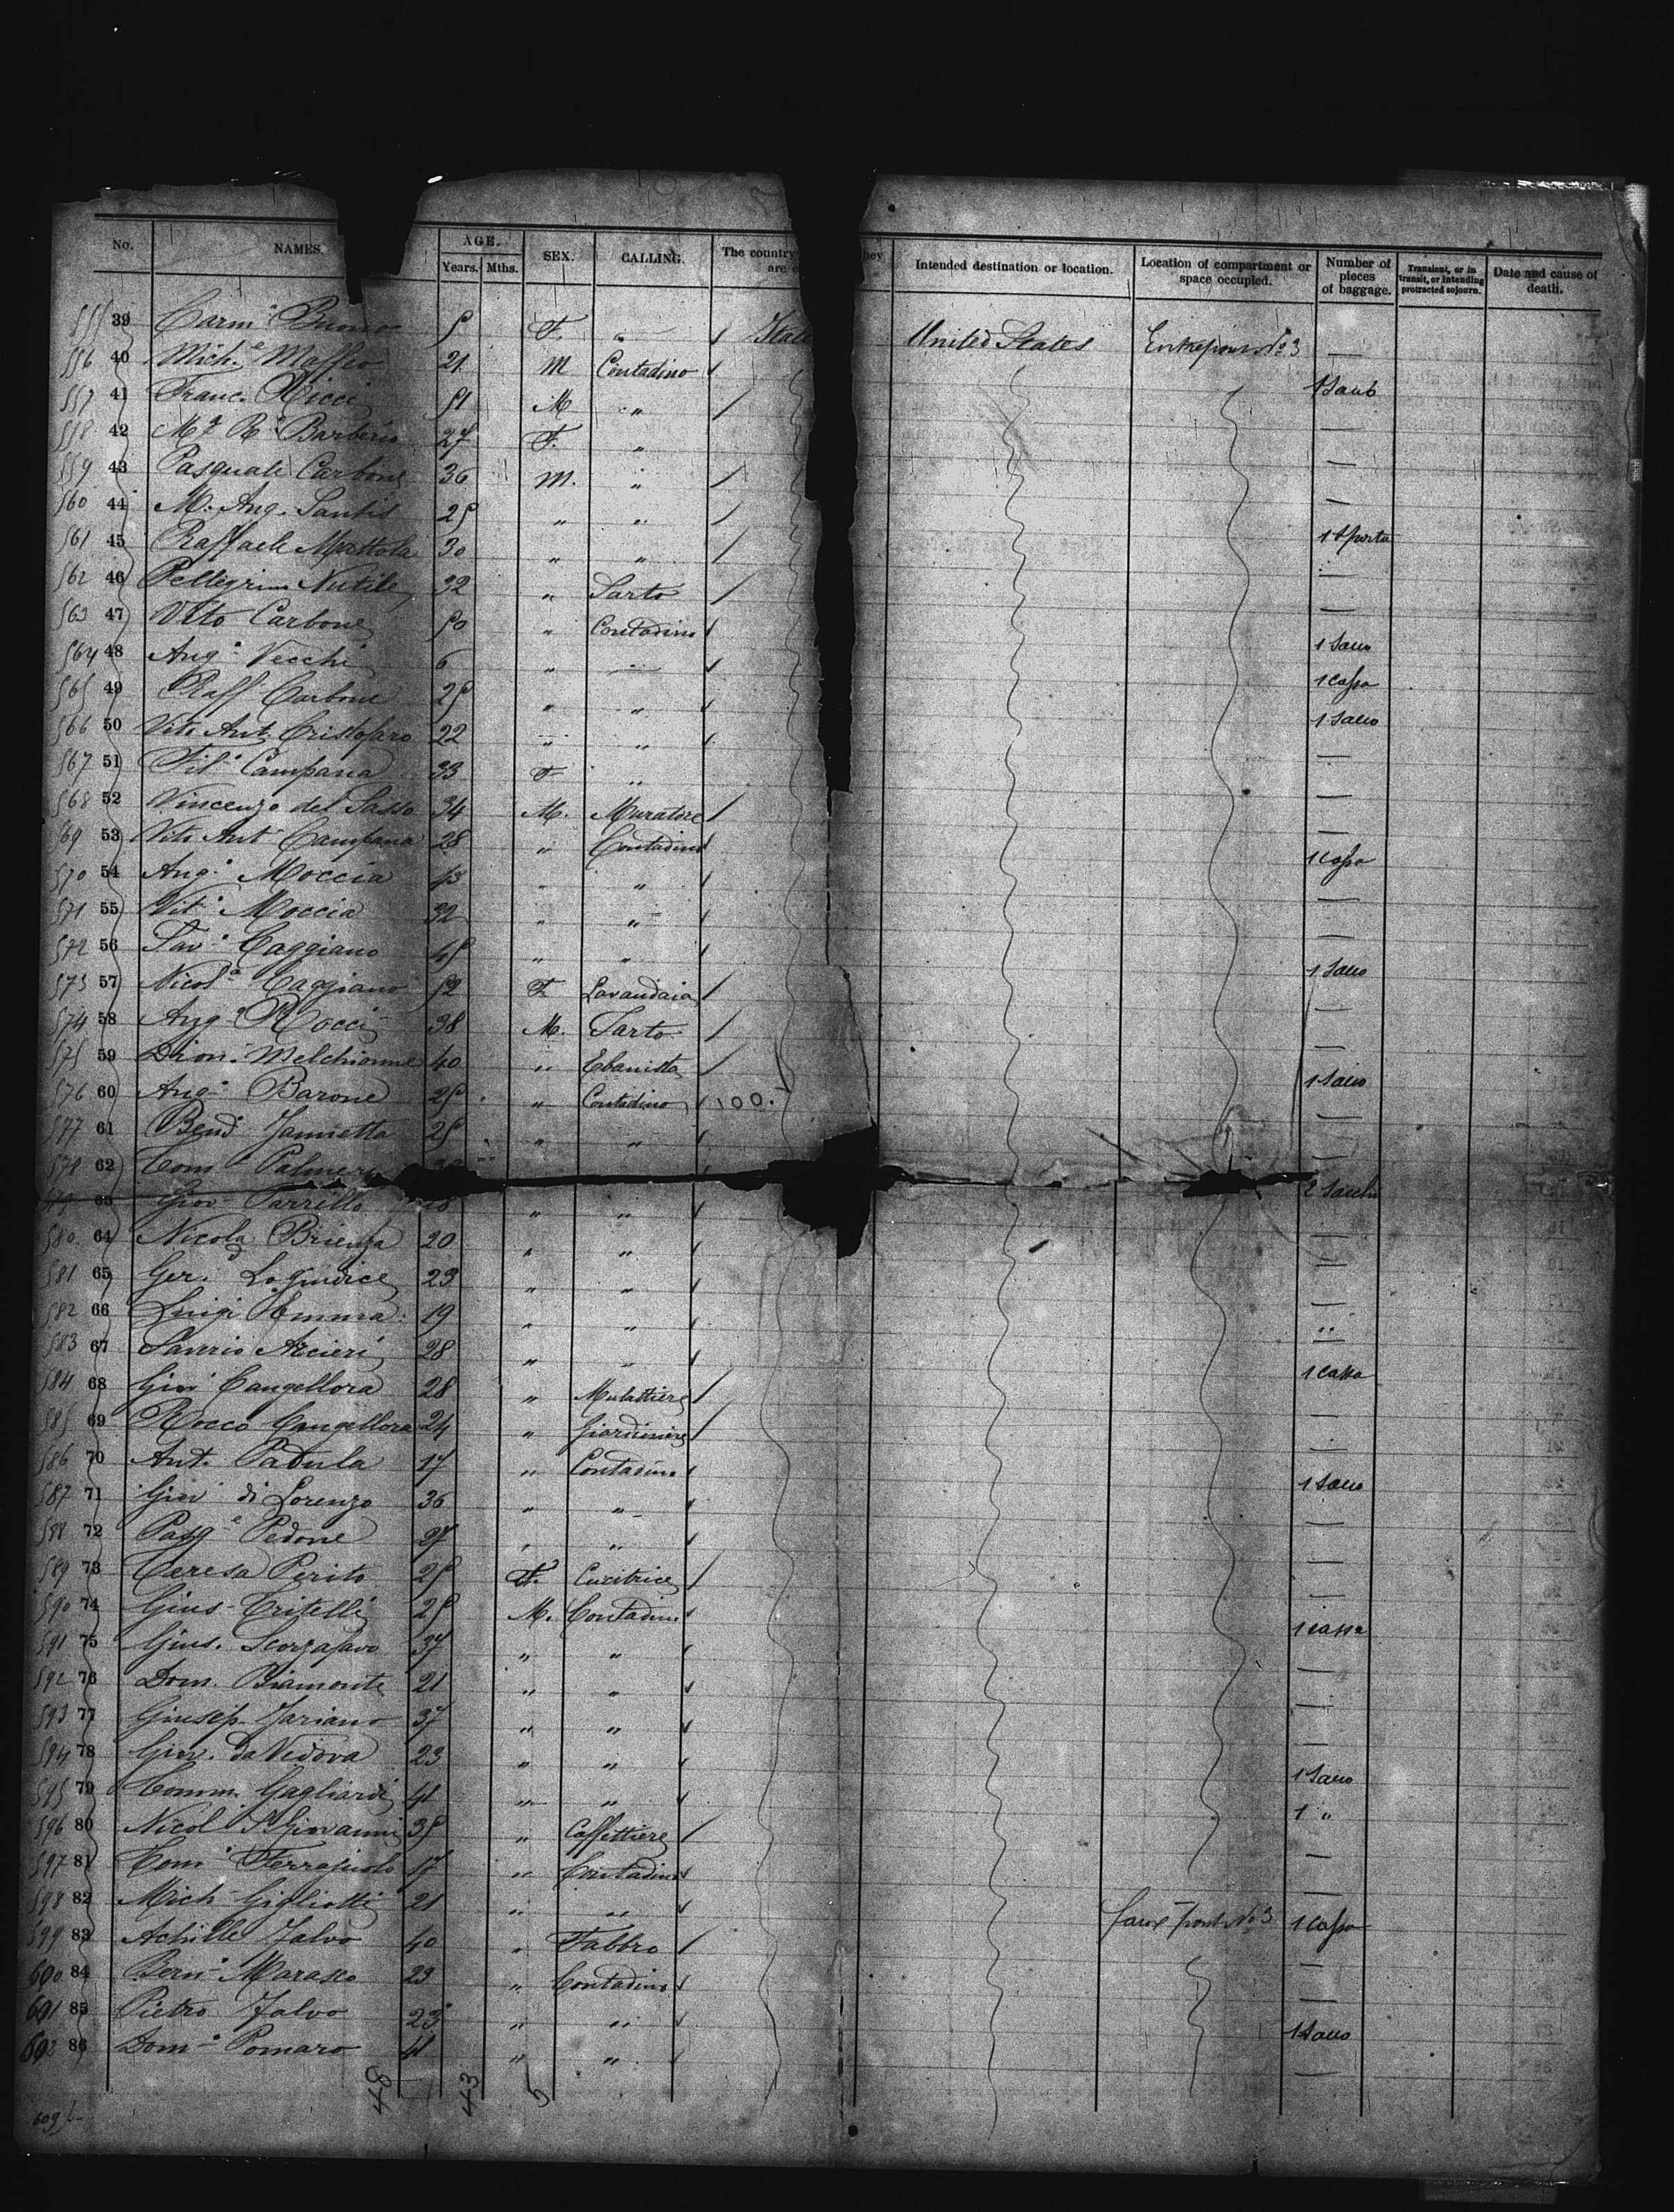 No. NAMES. AGE. Years. Mths. SEX. CALLING. The country are Intended destination or location. Location of compartment or space occupied. Number of pieces of baggage. Transient, or in transit, or intending protracted sojourn. Date and cause of death.
555 39 Carm.a Buono F. " United States No 3 —
556 40 Mich.e Maffeo 21 M Contadino
557 41 Franc. Ricci 51 M "
558 42 Ma Ra Barberio 27 F. " —
559 43 Pasquale Carbone 36 M. " —
560 44 M. Ang. Santis 25 " " —
561 45 Raffaele 30 " " 1 Sporta
562 46 Pellegrino Nutile 32 " Sarto —
563 47 Vito Carbone 50 " Contadino —
564 48 Ang.o Vecchi 6 " " 1 Sacco
565 49 Raff. Carbone 25 " " 1 Cassa
566 50 Vito Ant. Cristofaro 22 " " 1 Sacco
567 51 Fil.a Campana 33 F " —
568 52 Vincenzo del Sasso 34 M. Muratore —
569 53 Vito Ant. Campana 28 " Contadino —
570 54 Ang.o Moccia 43 " " 1 Cassa
571 55 Vit.o Moccia 32 " " —
572 56 Sav.o Caggiano 45 " " —
573 57 Nicol.a Caggiano 52 F Lavandaia 1 Sacco
574 58 Ang.o Rocci 38 M. Sarto —
575 59 Dion. Melchionne 40 " Ebanista —
576 60 Ang.o Barone 25 " Contadino 100. 1 Sacco
577 61 Bend. Jannetta 25 " " —
578 62 Tom. —
63 Giov. Parrillo " " 2 Sacchi
580 64 Nicola Brienza 20 " " —
581 65 Ger.o Logiudice 23 " " —
582 66 Luigi Emma 19 " " —
583 67 Saverio Arcieri 28 " "
584 68 Giov. Cangellora 28 " Mulattiere 1 cassa
585 69 Rocco Cangellora 24 " Giardiniere —
586 70 Ant. Padula 17 " Contadino —
587 71 Giov. di Lorenzo 36 " " 1 Sacco
588 72 Pasq.e Pedone 27 " " —
589 73 Teresa Perito 25 F. Cucitrice —
590 74 Gius. Tritelli 25 M. Contadino —
591 75 Gius. Scorzafavo 37 " " 1 cassa
592 76 Dom. Biamonte 21 " " —
593 77 Giusep. Jariano 37 " " —
594 78 Giov. Da Vedova 23 " " —
595 79 Tomm. Gagliardi 41 " " 1 Sacco
596 80 Nicol. S. Giovanni 35 " Caffettiere 1 "
597 81 Tom. 17 " Contadino —
598 82 Mich. Gigliotti 21 " " —
599 83 Achille Falvo 40 " Fabbro faux Pont No 3 1 Cassa
600 84 Bern. Marasco 23 " Contadino —
601 85 Pietro Falvo 23 " " —
602 86 Dom. Pomaro 41 " " 1 Sacco
48 43 5